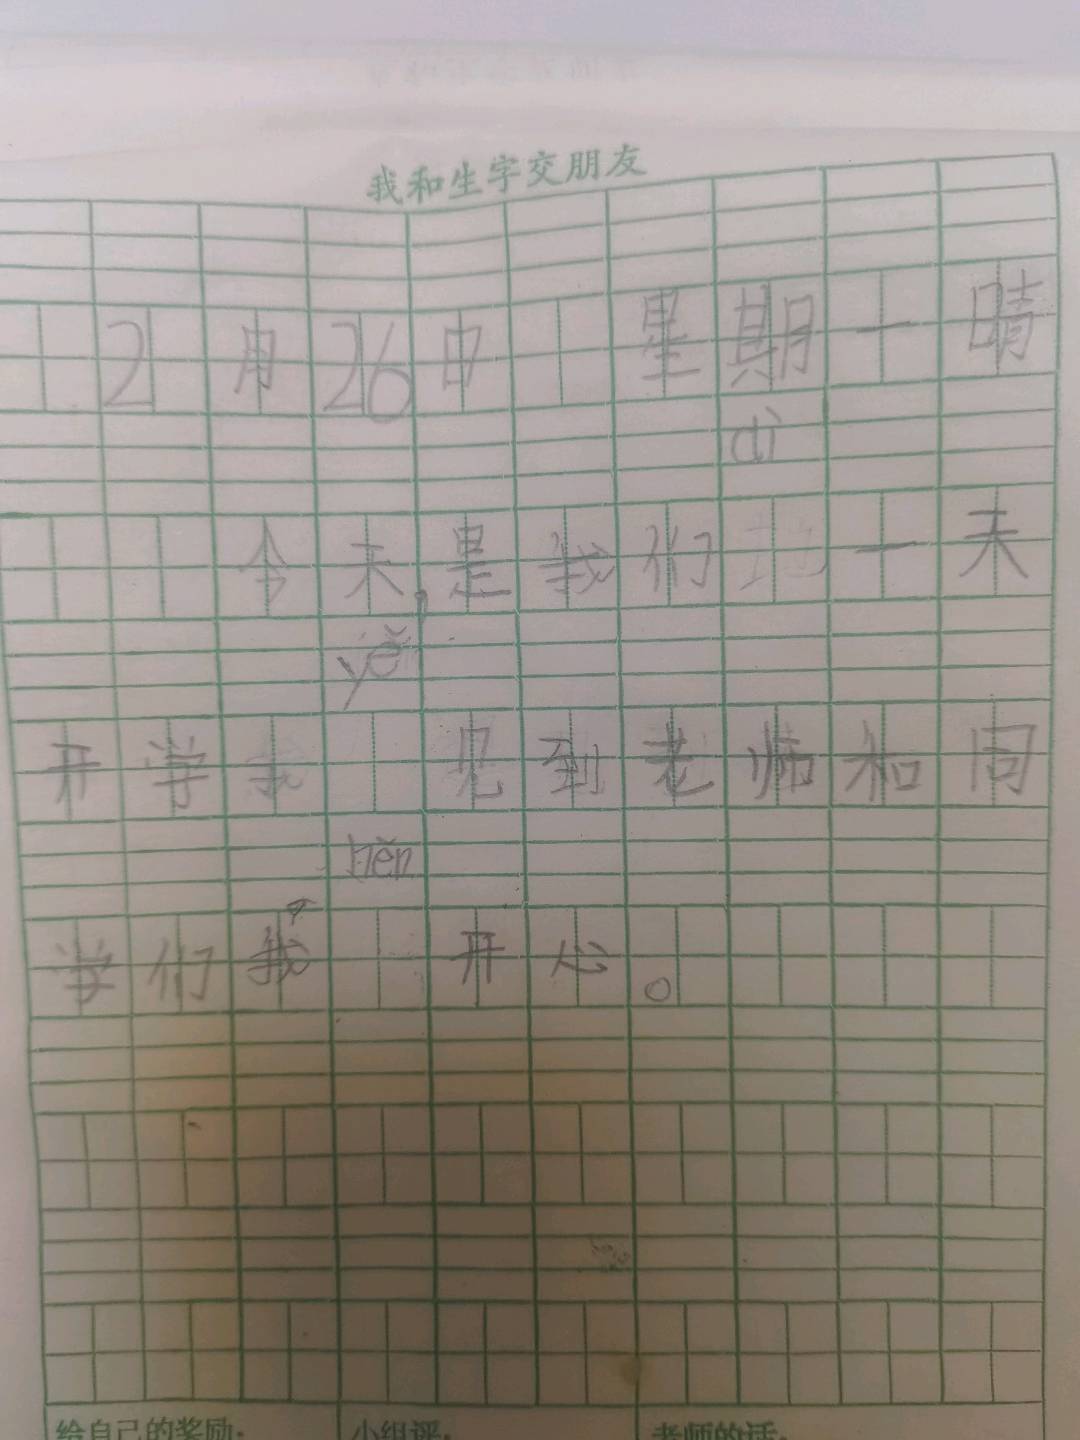 我和生字交朋友
2月26日 星期一晴
dì
今天,是我们 一天
yě
开学我 见到老师和同
hěn
学们我 开心。
给自己的奖励:
小组评:
老师的话: